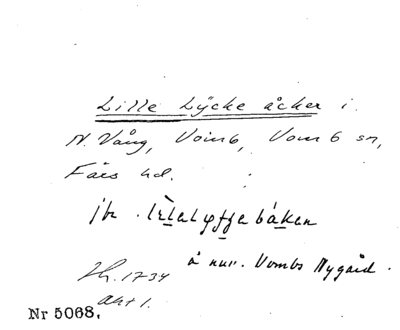 Lille Lÿcke åcker i
N. Vång, Vomb, Vomb sn,
Färs hd.
jfr
å nuv. Vombs Nygård.
Lh. 1734
akt 1.
Nr 5068.